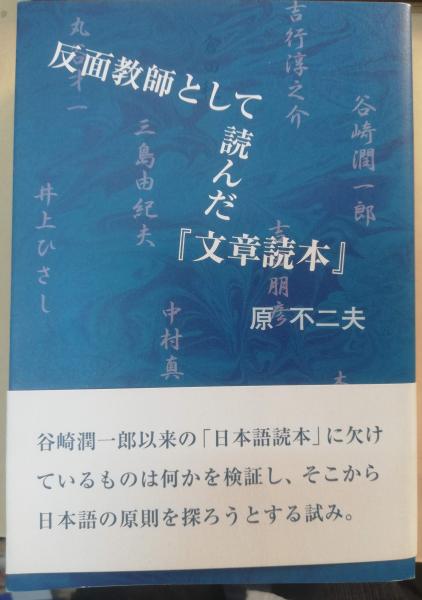 反面教師として
読んだ
『文章読本』
原 不二夫
吉行淳之介
谷崎潤一郎
丸谷才一
三島由紀夫
井上ひさし
朋彦
中村真
谷崎潤一郎以来の「日本語読本」に欠け
ているものは何かを検証し、そこから
日本語の原則を探ろうとする試み。